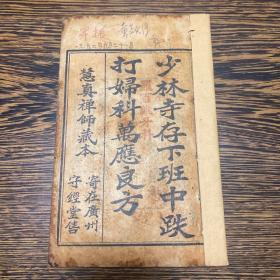 少林寺存下班中跌
打婦科萬應良方
慧真禅師藏本
寄在廣州
守經堂售